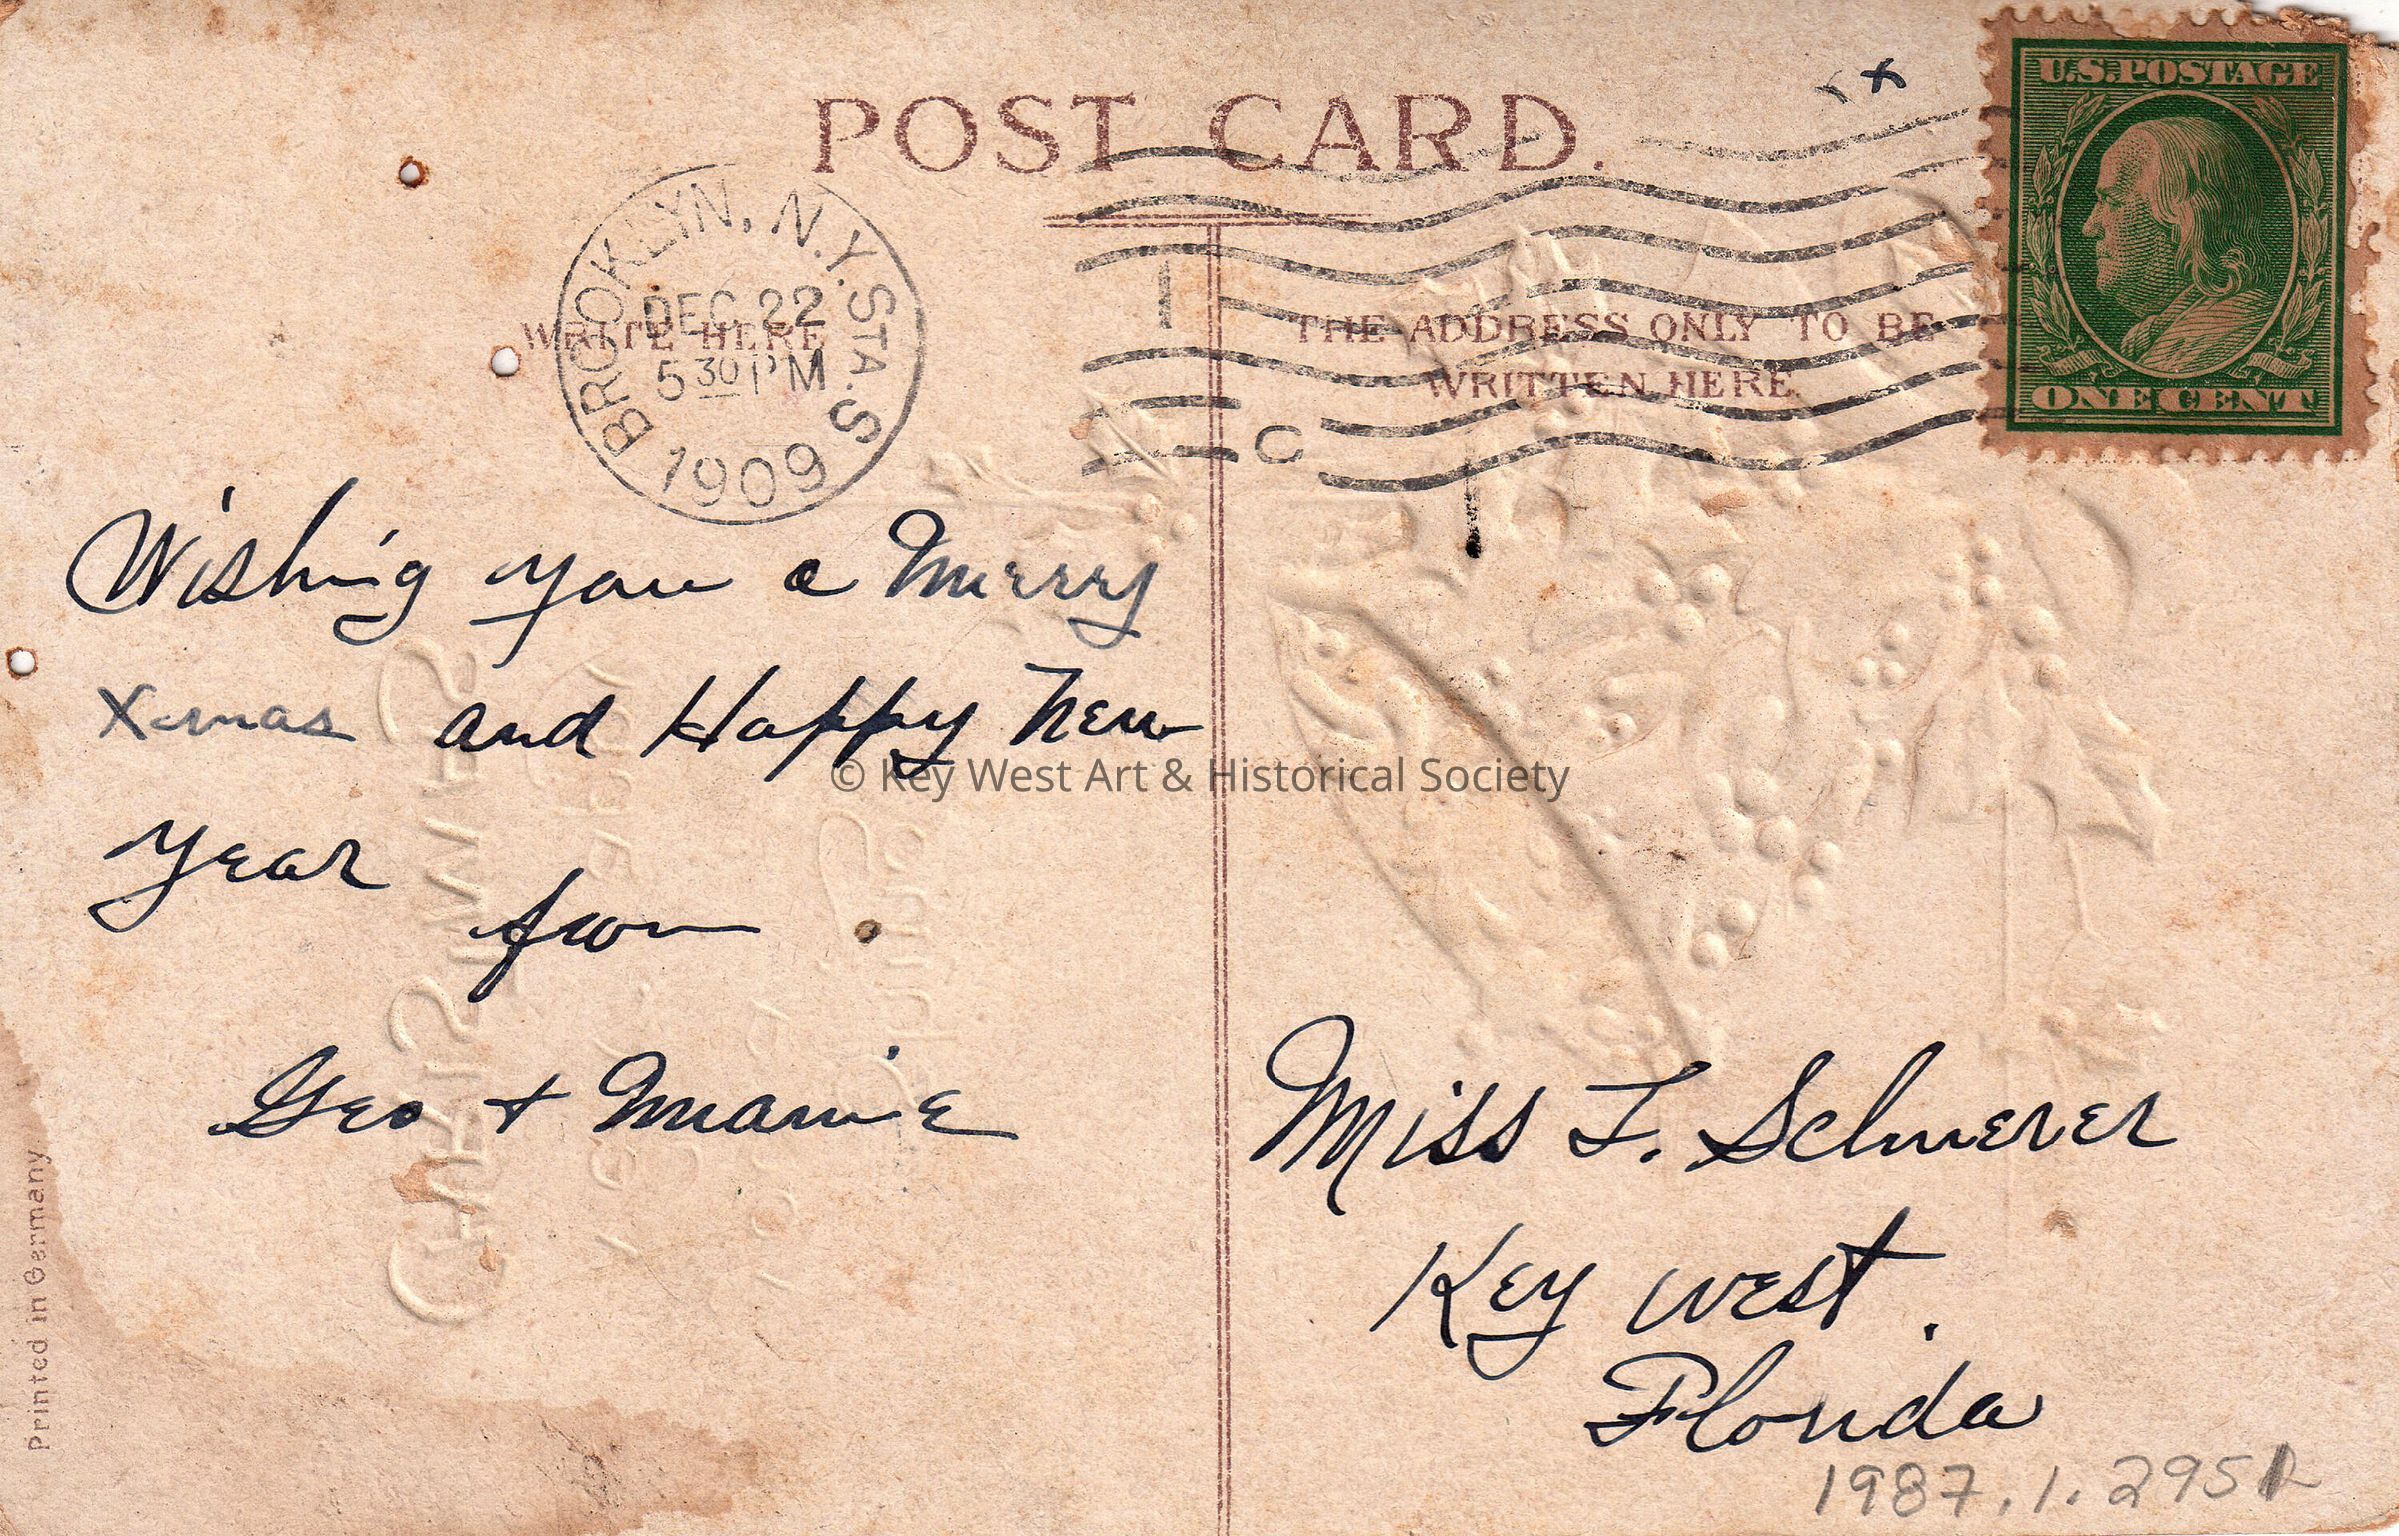 POST CARD.
U.S. POSTAGE
ONE CENT
BROOKLYN, N.Y. STA. S
DEC 22
5 30 PM
1909
C
WRITE HERE
THE ADDRESS ONLY TO BE
WRITTEN HERE.
Wishing you a Merry
Xmas and Happy New
Year
from
Geo + Mamie
© Key West Art & Historical Society
Miss T. Schwerer
Key West.
Florida
1987.1.295
Printed in Germany